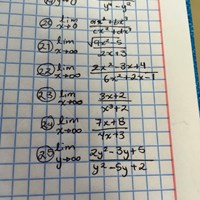 y² - y²
20) lim x→0 ax² + bx³ / cx² + dx³
21) lim x→∞ √9x² - 5 / 2x + 3
22) lim x→∞ 2x² - 3x + 4 / 6x² + 2x - 1
23 lim x→∞ 3x + 2 / x³ + 2
24 lim x→∞ 7x + 8 / 4x + 3
25 lim y→∞ 2y² - 3y + 5 / y² - 5y + 2